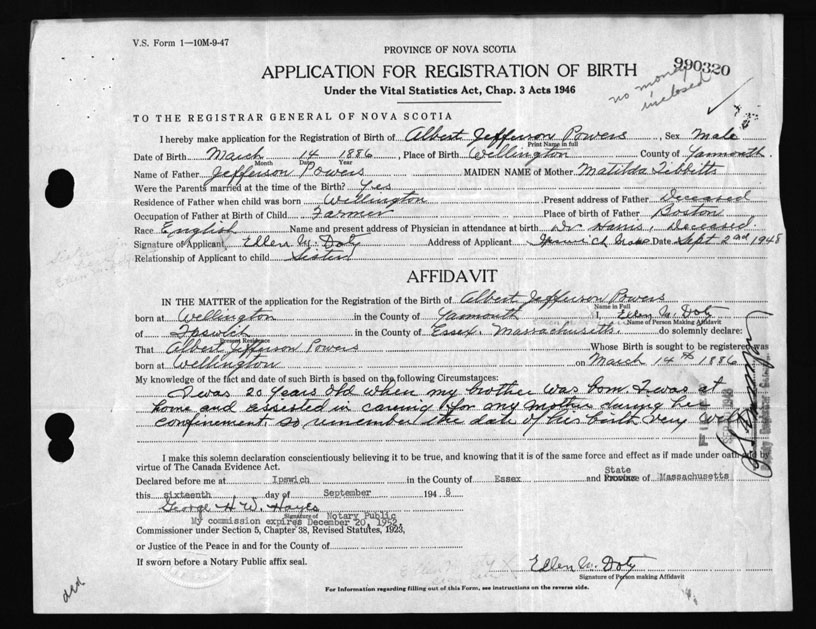 V.S. Form 1—10M-9-47
PROVINCE OF NOVA SCOTIA
APPLICATION FOR REGISTRATION OF BIRTH
990320
no money inclosed
Under the Vital Statistics Act, Chap. 3 Acts 1946
TO THE REGISTRAR GENERAL OF NOVA SCOTIA
I hereby make application for the Registration of Birth of Albert Jefferson Powers, Sex Male
Print Name in full
Date of Birth March 14 1886, Place of Birth Wellington County of Yarmouth
Month Date Year
Name of Father Jefferson Powers MAIDEN NAME of Mother Matilda Tibbitts
Were the Parents married at the time of the Birth? Yes
Residence of Father when child was born Wellington Present address of Father Deceased
Occupation of Father at Birth of Child Farmer Place of birth of Father Boston
Race English Name and present address of Physician in attendance at birth Dr Harris, Deceased
Signature of Applicant, Ellen M. Doty Address of Applicant Ipswich Mass Date Sept 2nd 1948
Relationship of Applicant to child Sister
AFFIDAVIT
IN THE MATTER of the application for the Registration of the Birth of Albert Jefferson Powers
Name in Full
born at Wellington in the County of Yarmouth I, Ellen M. Doty
Name of Person Making Affidavit
of Ipswich in the County of Essex. Massachusetts. do solemnly declare:
Present Residence
That Albert Jefferson Powers Whose Birth is sought to be registered was
born at Wellington on March 14th 1886
My knowledge of the fact and date of such Birth is based on the following Circumstances:
I was 20 years old when my brother was born I was at
home and assisted in caring for my mother during her
confinement so remember the date of his birth very well
I make this solemn declaration conscientiously believing it to be true, and knowing that it is of the same force and effect as if made under oath and by
virtue of The Canada Evidence Act.
State
Declared before me at Ipswich in the County of Essex and Province of Massachusetts
this sixteenth day of September 1948
George H. W. Hayes
Signature of Notary Public
My commission expires December 20, 1952
Commissioner under Section 5, Chapter 38, Revised Statutes, 1923,
or Justice of the Peace in and for the County of
If sworn before a Notary Public affix seal.
Ellen M. Doty
Signature of Person making Affidavit
For Information regarding filling out of this Form, see instructions on the reverse side.